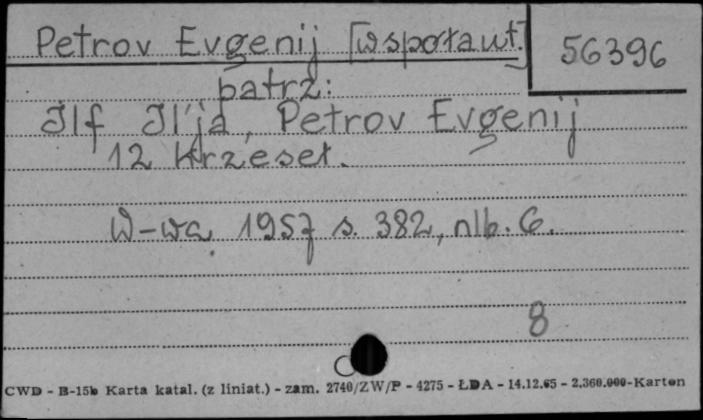 Petrov Evgenij [współaut.]
56396
patrz:
Ilf Il'ja, Petrov Evgenij
12 Krzeseł.
W-wa 1957 s. 382, nlb. 6.
8
CWD - B-15b Karta katal. (z liniat.) - zam. 2740/ZW/P - 4275 - ŁDA - 14.12.65 - 2.360.000-Karton